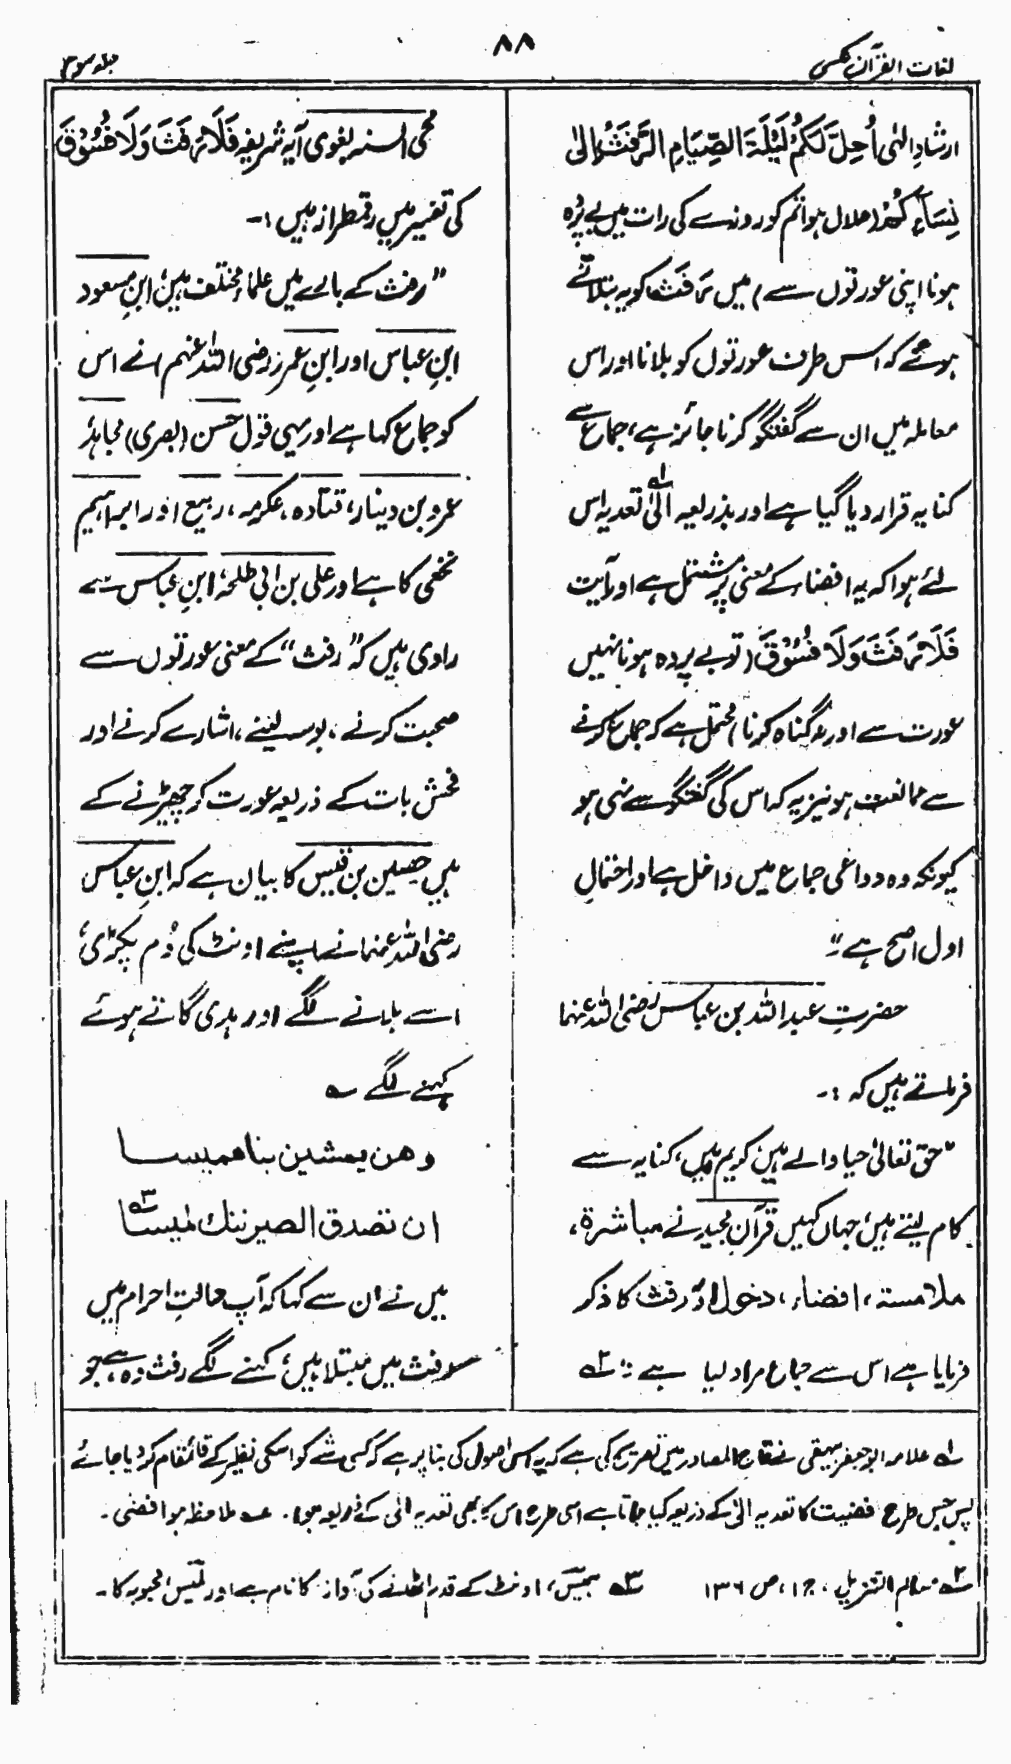 لغات القرآن عکسی
۸۸
جلد سوم
ارشادِ الٰہی اُحِلَّ لَکُمْ لَیْلَۃَ الصِّیَامِ الرَّفَثُ اِلیٰ
نِسَآءِ کُمْ (حلال ہوا تم کو روزے کی رات میں بے پردہ
ہونا اپنی عورتوں سے) میں رَفَثُ کو یہ بتلاتے
ہوئے کہ اس طرف عورتوں کو بلانا اور اس
معاملہ میں ان سے گفتگو کرنا جائز ہے، جماع سے
کنایہ قرار دیا گیا ہے اور بذریعہ الیٰ تعدیہ اس ۱ے
لئے ہوا کہ یہ افضاء کے معنی پر مشتمل ہے اور آیت
فَلَا رَفَثَ وَلَا فُسُوْقَ (تو بے پردہ ہونا نہیں
عورت سے اور نہ گناہ کرنا) محتمل ہے کہ جماع کرنے
سے ممانعت ہو نیز یہ کہ اس کی گفتگو سے نہی ہو
کیونکہ وہ دواعی جماع میں داخل ہے اور احتمالِ
اول اصح ہے"
حضرتِ عبداللہ بن عباس رضی اللہ عنہما
فرماتے ہیں کہ :-
"حق تعالیٰ حیا والے ہیں کریم ہیں، کنایہ سے
کام لیتے ہیں، جہاں کہیں قرآنِ مجید نے مباشرۃ،
ملامستہ، افضاء، دخول اور رفث کا ذکر
فرمایا ہے اس سے جماع مراد لیا ہے" ۲ے
محی السنہ بغوی آیہ شریفہ فَلَا رَفَثَ وَلَا فُسُوْقَ
کی تفسیر میں رقمطراز ہیں :-
"رفث کے بارے میں علماء مختلف ہیں، ابنِ مسعود
ابنِ عباس اور ابنِ عمر (رضی اللہ عنہم) نے اس
کو جماع کہا ہے اور یہی قول حسن (بصری) مجاہد،
عمرو بن دینار، قتادہ، عکرمہ، ربیع اور ابراہیم
نخعی کا ہے اور علی بن ابی طلحہ، ابنِ عباس سے
راوی ہیں کہ "رفث" کے معنی عورتوں سے
صحبت کرنے، بوسہ لینے، اشارے کرنے اور
فحش بات کے ذریعہ عورت کو چھیڑنے کے
ہیں حصین بن قیس کا بیان ہے کہ ابنِ عباس
رضی اللہ عنہما نے اپنے اونٹ کی دُم پکڑی،
اسے بلانے لگے اور ہدی گاتے ہوئے
کہنے لگے ؎
وهن يمشين بنا هميسا
ان تصدق الطير ننك لميسا ۳ے
میں نے ان سے کہا کہ آپ حالتِ احرام میں
رفث میں مبتلا ہیں، کہنے لگے رفث وہ ہے، جو
۱ے علامہ ابو جعفر بیہقی نے تاج المصادر میں تصریح کی ہے کہ یہ اس اصول کی بنا پر ہے کہ کسی شے کو اسکی نظیر کے قائمقام کر دیا جائے
پس جس طرح افضیت کا تعدیہ الیٰ کے ذریعہ کیا جاتا ہے اسی طرح اس کا بھی تعدیہ الیٰ کے ذریعہ ہوا۔ عہ ملاحظہ ہو افضیٰ۔
۲ے معالم التنزیل، ج۱، ص ۱۳۶
۳ے ہمیس، اونٹ کے قدم اٹھانے کی آواز کا نام ہے اور لمیس محبوبہ کا۔